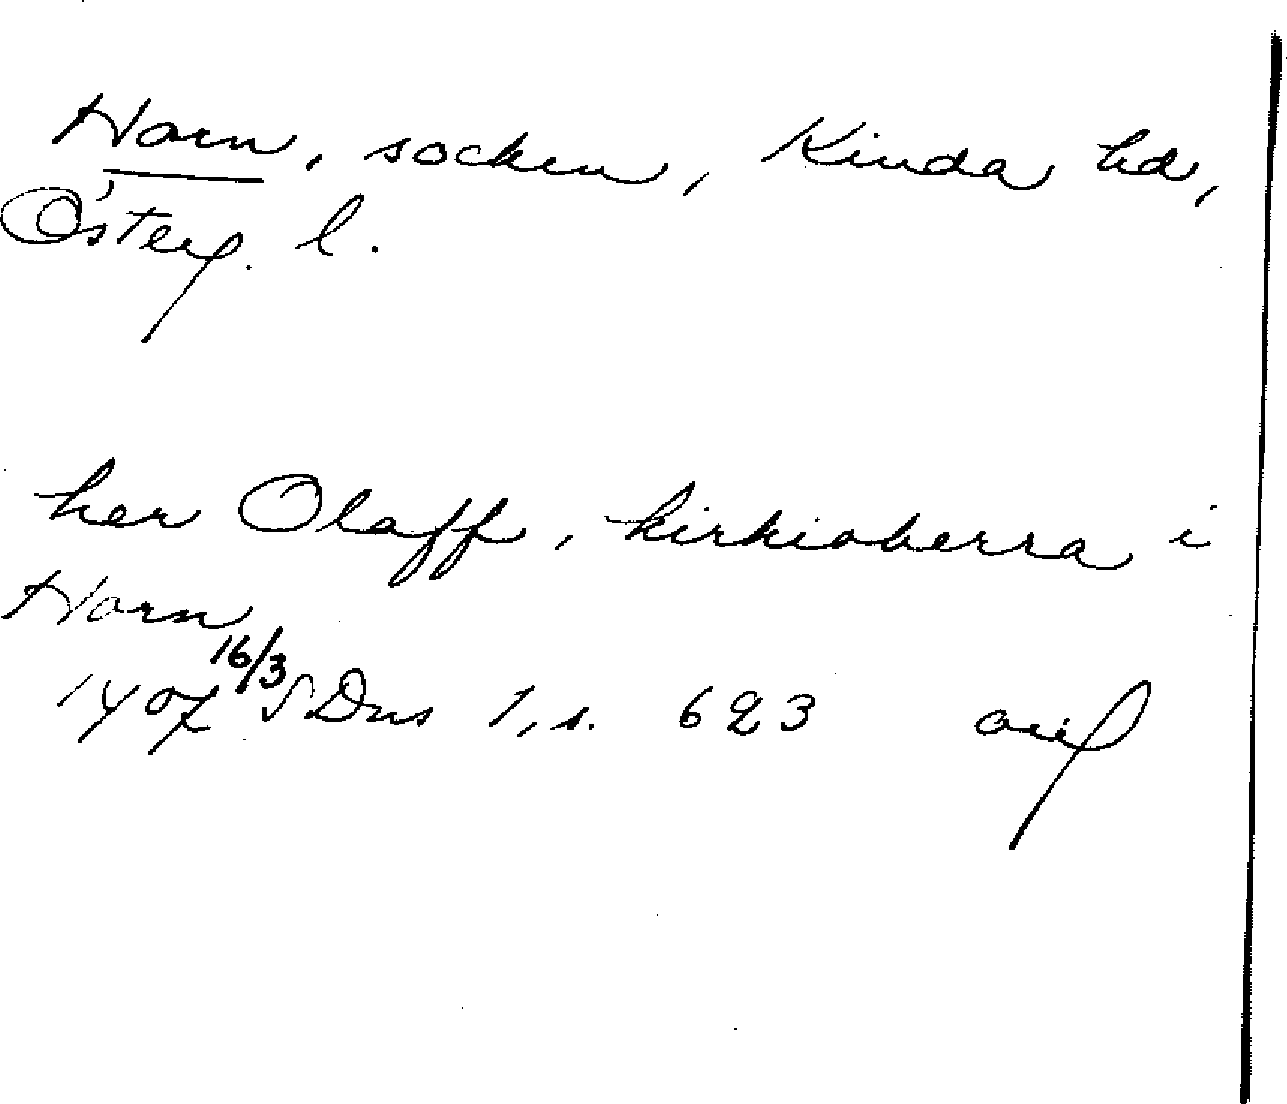 Horn, socken, Kinda hd,
Österg. l.
her Olaff, kirkioherra i
Horn
1407 16/3 SDns 1, s. 623 orig